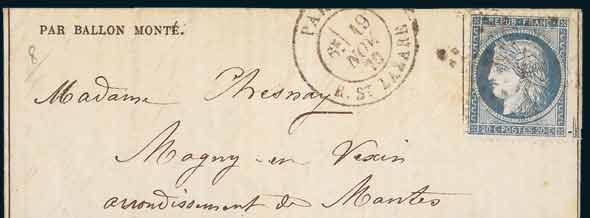 8
PAR BALLON MONTÉ.
PARIS
19
NOV.
70
R. ST LAZARE
REPUB. FRANC.
20 C. POSTES 20 C.
Madame Chesnay
Magny-en-Vexin
arrondissement de Mantes